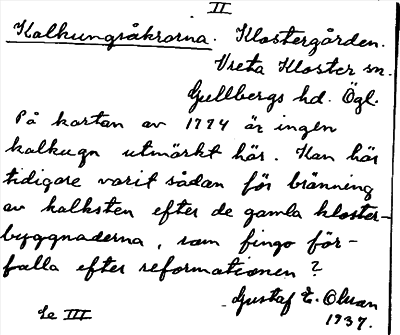 II
Kalkungsåkrarna. Klostergården.
Vreta Kloster sn.
Gullbergs hd. Ögl.
På kartan av 1774 är ingen
kalkugn utmärkt här. Kan här
tidigare varit sådan för bränning
av kalksten efter de gamla kloster-
byggnaderna, som fingo för-
falla efter reformationen?
Gustaf E. Olsson
1937.
Se III